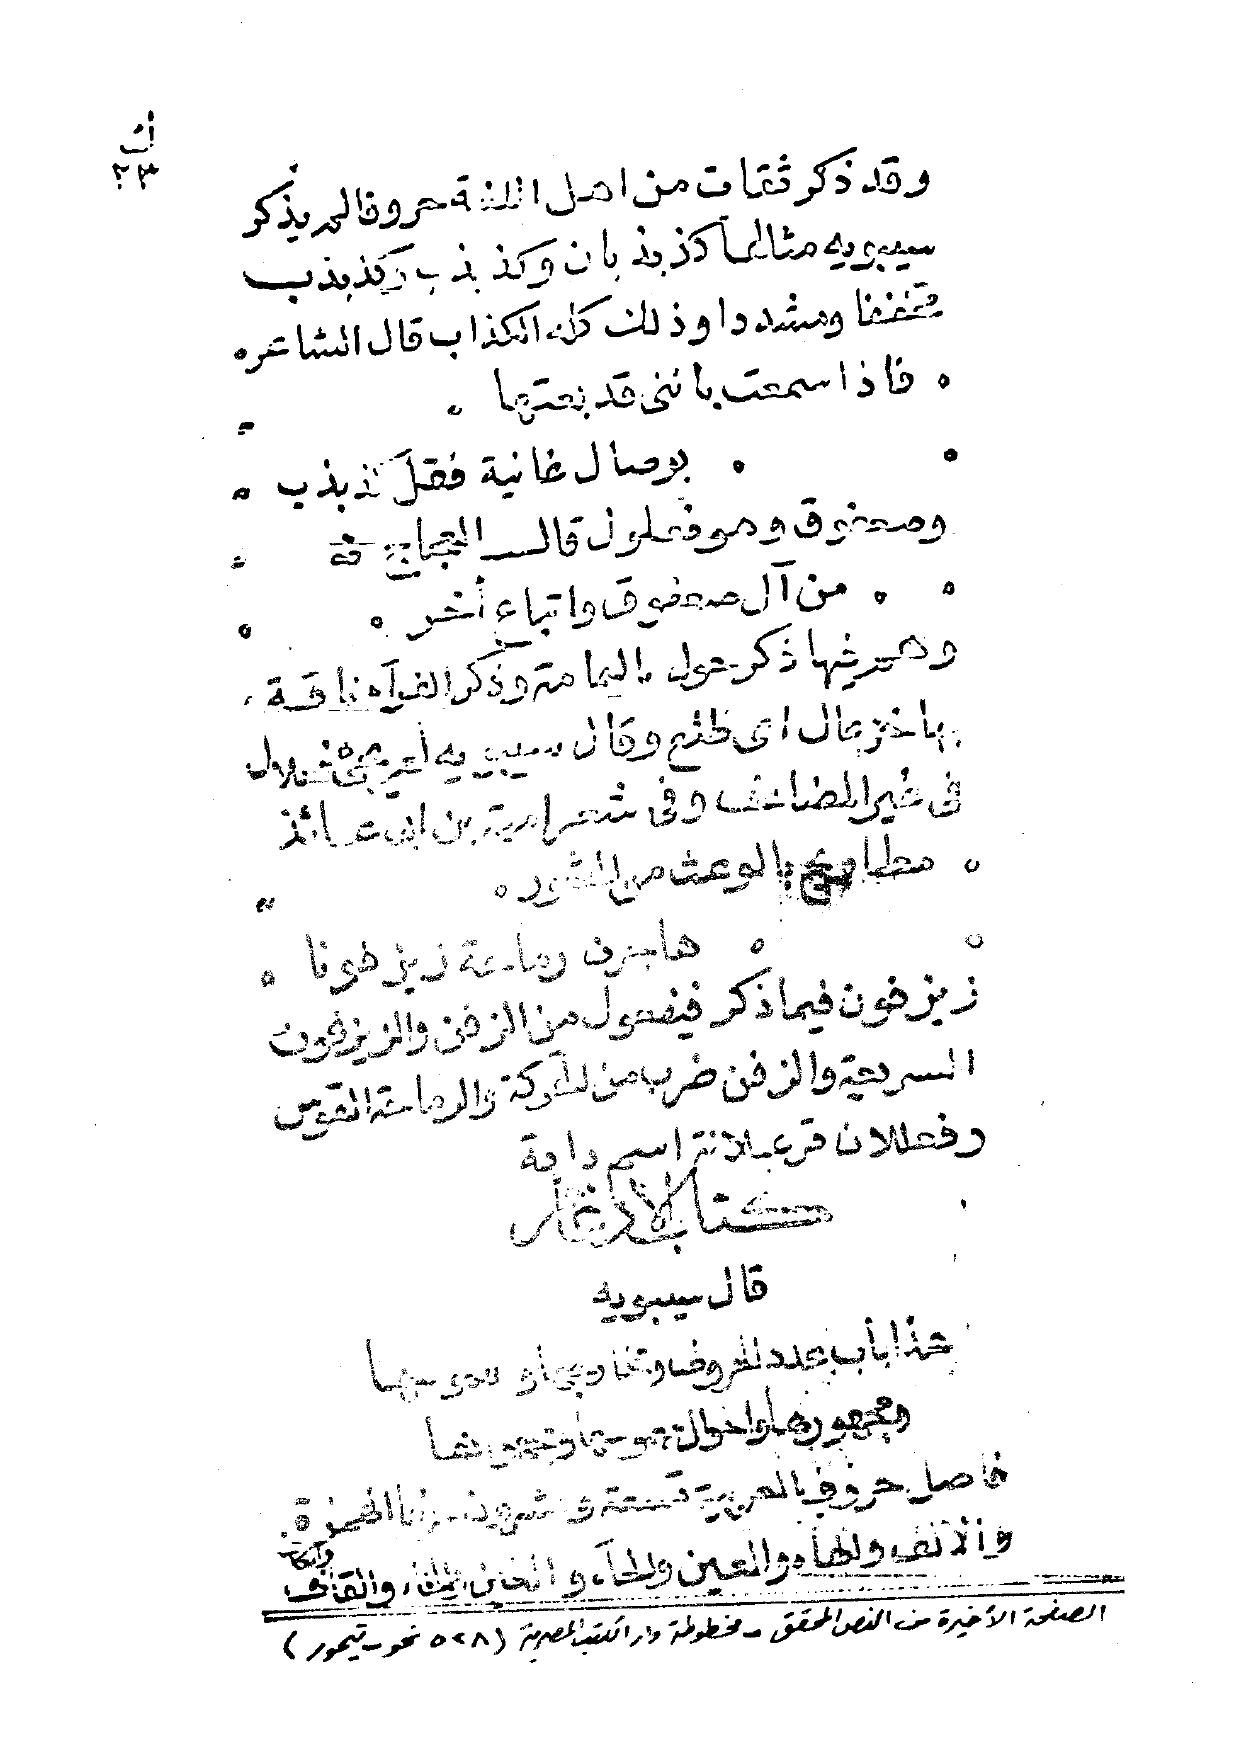 ٢٣
وقد ذكر ثقات من اهل اللغة حروفا لم يذكر
سيبويه مثالها كذبذبان وكذبذب وكذبذب
مخففا ومشددا وذلك كله الكذاب قال الشاعر
فاذا سمعت باننى قد بعتها
بوصال غانية فقل كذبذب
وصعفوق وهو فعلول قال العجاج
من آل صعفوق واتباع أخر
ذكر حول باليمامة وذكر الفرآء ناقة
بها خزعال اى ظلع وقال سيبويه لم يجئ فعلال
فى غير المضاعف وفى شعر امية بن ابى عائذ
مطاريح بالوعث
هاجرن رماحة زيزفونا
زيزفون فيما ذكر فيفعول من الزفن والزيزفون
السريعة والزفن ضرب من الحركة والرماحة القوس
وفعللان قرعبلانة اسم دابة
كتاب الادغام
قال سيبويه
هذا باب عدد الحروف ومخارجها ومهموسها
ومجهورها واحوال مهموسها ومجهورها
فاصل حروف العربية تسعة وعشرون حرفا الهمزة
والالف والهاء والعين والحآء والغين والخاء والقاف
والكاف
الصفحة الأخيرة من النص المحقق - مخطوطة دار الكتب المصرية (٥٢٨ نحو - تيمور)